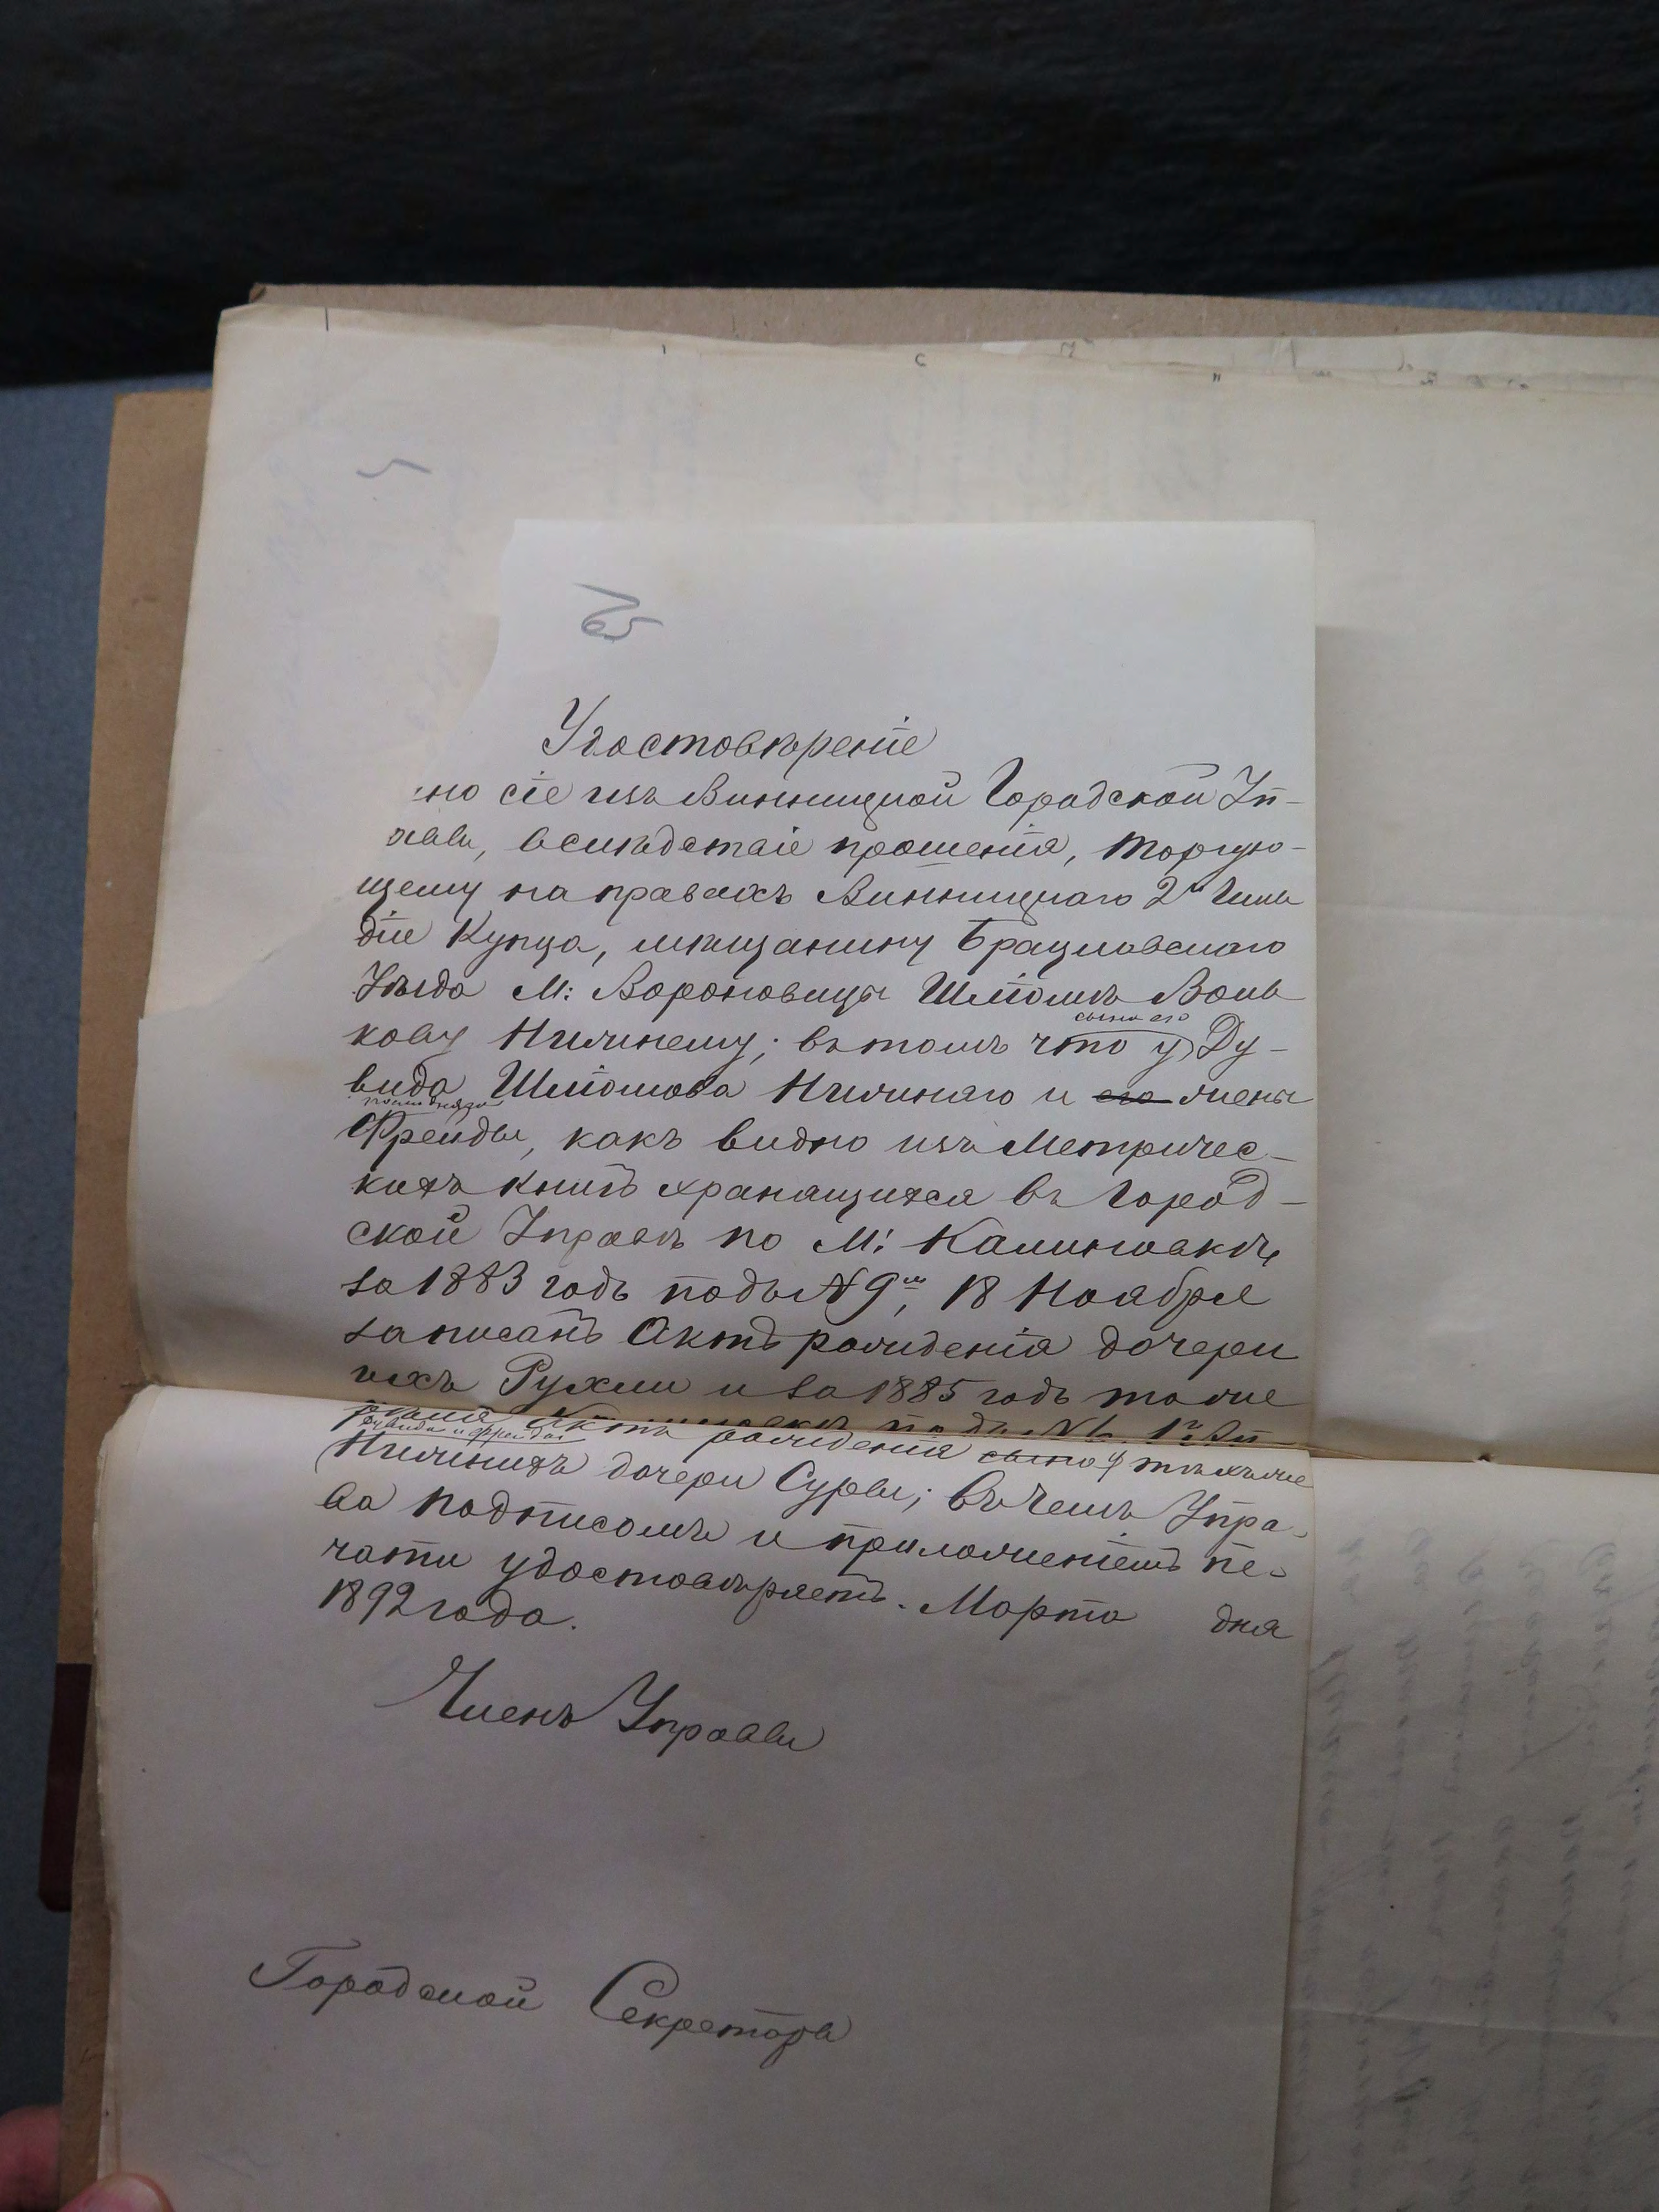 Удостовѣреніе
но сіе изъ Винницкой Городской Уп-
равы, вслѣдствіе прошенія, торгую-
щему на правахъ Винницкаго 2й Гиль
діи Купца, мѣщанину Брацлавскаго
Уѣзда М: Вороновицы Шліомѣ Воль
кову Нижнему; въ томъ что у Ду-
сына его
вида Шліомова Нижнаго и его жены
послѣдняго
Фрейды, какъ видно изъ Метричес-
кихъ книгъ хранящихся въ Город-
ской Управѣ по М: Калиновкѣ
за 1883 годъ подъ N 9м, 18 Ноября
записанъ Актъ рожденія дочери
ихъ Рухли и за 1885 годъ тоже
подъ N 1. Ап-
рѣля Актъ рожденія сына у тѣхъ же
Дувида и Фрейды
Нижнихъ дочери Суры; въ чемъ Упра-
ва подписомъ и приложеніемъ пе-
чати удостовѣряетъ. Марта дня
1892 года.
Членъ Управы
Городской Секретарь